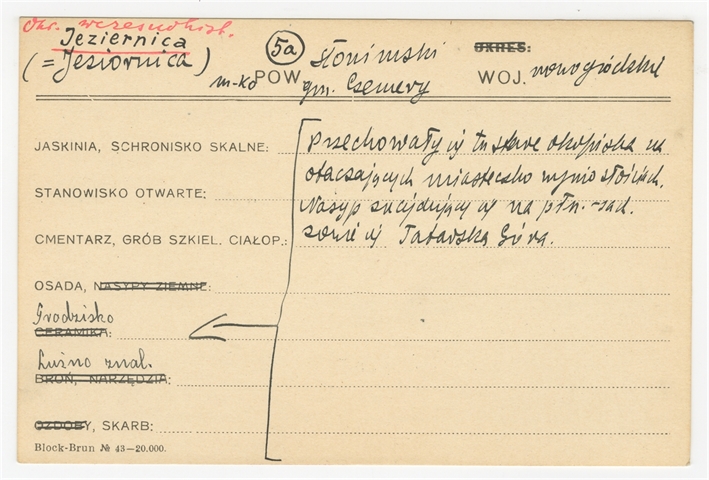 Okr. wczesnohist.
Jeziernica
(= Jesiornica)
m-ko
5a
POW. Słonimski
gm. Czemery
OKRES:
WOJ. nowogródzkie
JASKINIA, SCHRONISKO SKALNE:
STANOWISKO OTWARTE:
CMENTARZ, GRÓB SZKIEL. CIAŁOP.:
OSADA, NASYPY ZIEMNE:
Grodzisko
CERAMIKA:
Luźno znal.
BROŃ, NARZĘDZIA:
OZDOBY, SKARB:
Przechowały się tu stare okopiska na
otaczających miasteczko wyniosłościach.
Nasyp znajdujący się na płn.-zach.
zowie się Tatarska Góra.
Block-Brun № 43—20.000.